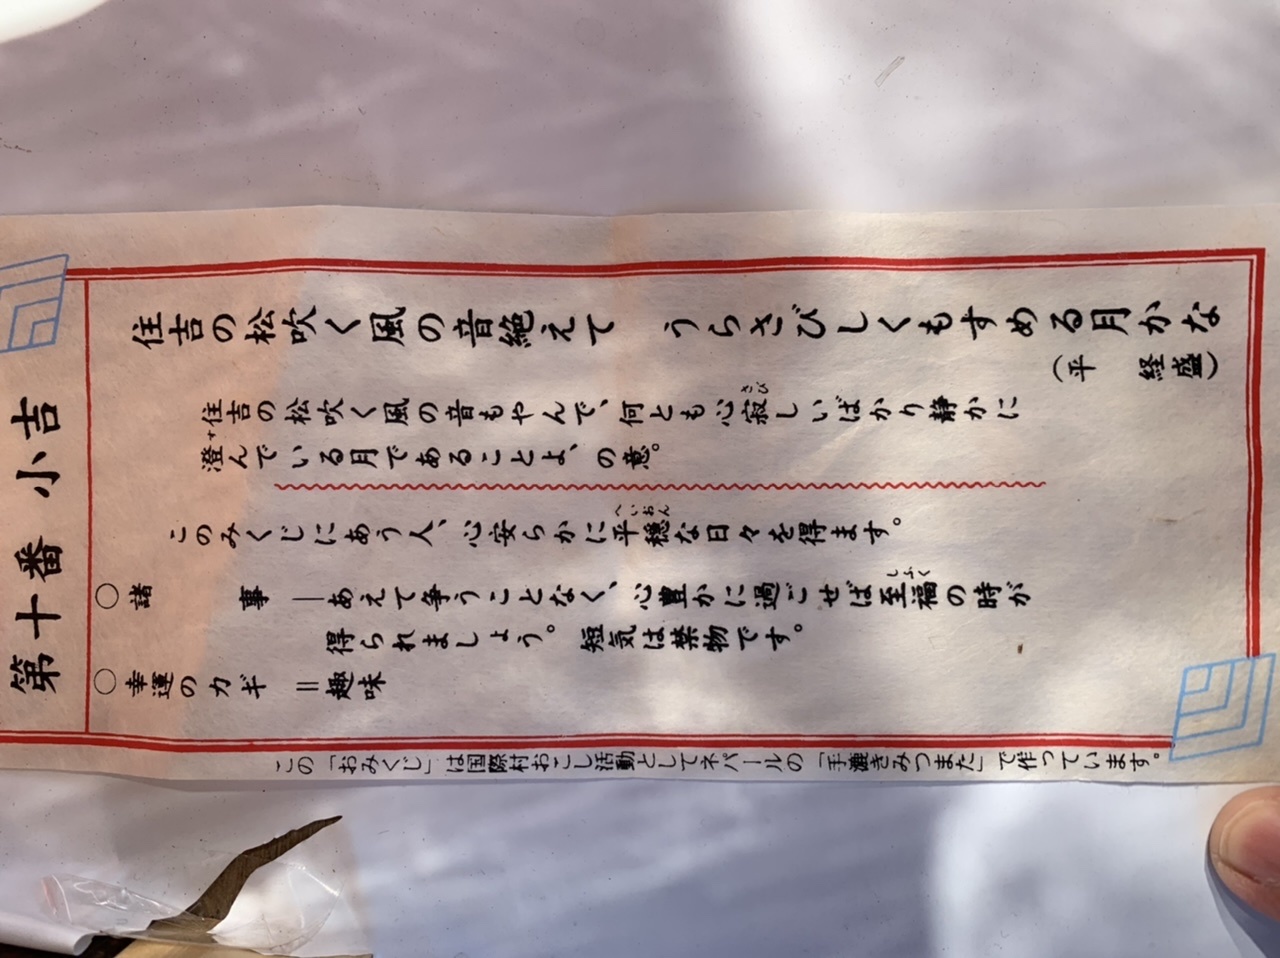 第十番 小吉
住吉の松吹く風の音絶えて うらさびしくもすめる月かな
(平 経盛)
住吉の松吹く風の音もやんで、何とも心寂しいばかり静かに
さび
澄んでいる月であることよ、の意。
す
このみくじにあう人、心安らかに平穏な日々を得ます。
へいおん
○諸 事=あえて争うことなく、心豊かに過ごせば至福の時が
しふく
得られましょう。短気は禁物です。
○幸運のカギ=趣味
この「おみくじ」は国際村おこし活動としてネパールの「手漉きみつまた」で作っています。